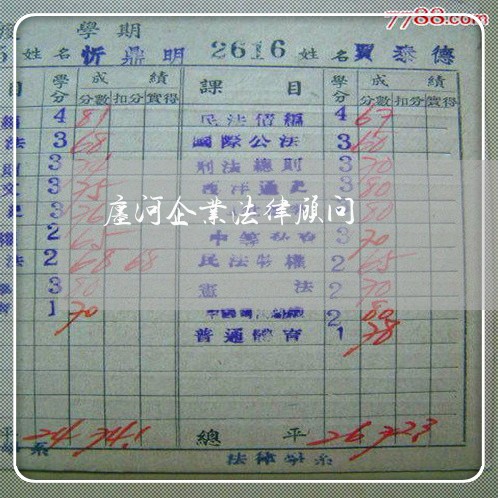 7788.com
學期
姓名 忻鼎明 2616 姓名 賈泰德
目 學分 成績 分數 扣分 實得 課目 學分 成績 分數 扣分 實得
4 81 民法債編 4 67
法 3 68 國際公法 3 60
3 刑法總則 3 70
3 75 西洋通史 3 80
3 3 80
2 65 3 70
法 2 68 68 民法物權 2 65
3 80 憲法 2 70
1 70 2 80
普通體育 1 78
廬河企業法律顾问
平 24 74.1 總平 26 72.3
系 法律學系